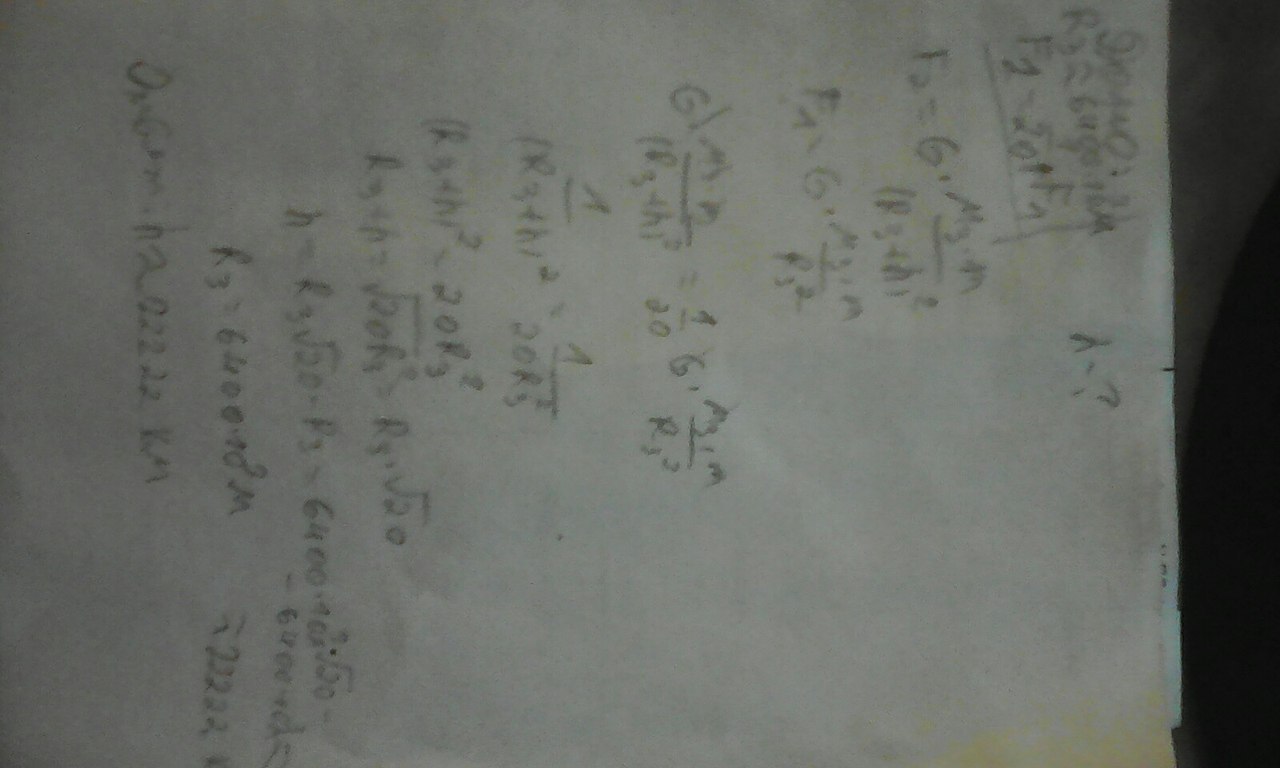 Дано:
R₃ = 6400 км
F₂ = 1/20 F₁
h - ?
F₂ = G · M₃·m / (R₃+h)²
F₁ = G · M₃·m / R₃²
G M₃·m / (R₃+h)² = 1/20 G · M₃·m / R₃²
1 / (R₃+h)² = 1 / 20R₃²
(R₃+h)² = 20R₃²
R₃+h = √20R₃² = R₃·√20
h = R₃√20 - R₃ = 6400·10³·√20 -
- 6400·10³ =
R₃ = 6400·10³ м
= 22222
Ответ: h ≈ 22222 км